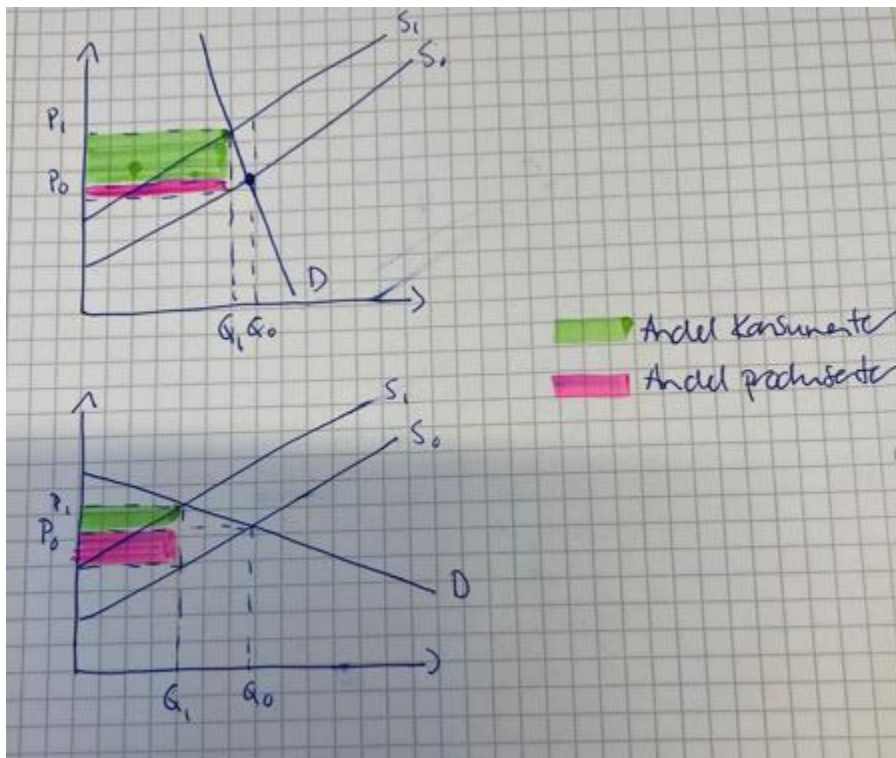 S₁
S₀
P₁
P₀
D
Q₁ Q₀
Andel Konsumenter
Andel produsenter
S₁
S₀
P₁
P₀
D
Q₁ Q₀